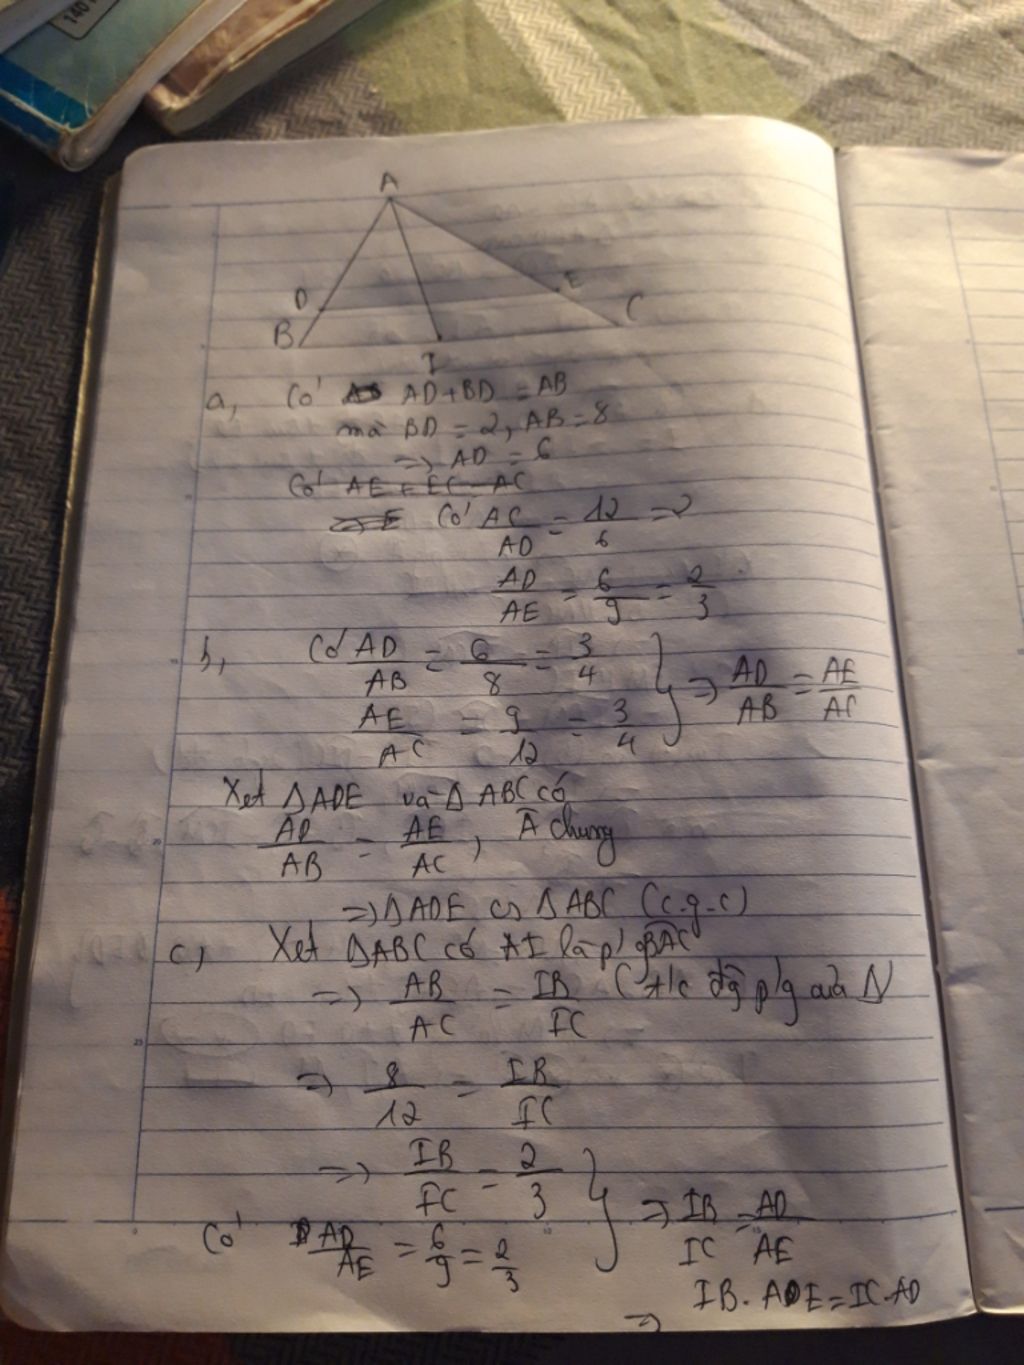 140
A
D
E
B
C
I
a, Có AD + BD = AB
mà BD = 2, AB = 8
=> AD = 6
Có AE + EC = AC
=> E Có AC/AD = 12/6 = 2
AD/AE = 6/9 = 2/3
b, Có AD/AB = 6/8 = 3/4
AE/AC = 9/12 = 3/4 } => AD/AB = AE/AC
Xét ΔADE và Δ ABC có
AD/AB = AE/AC, Â chung
=> ΔADE ∽ ΔABC (c.g.c)
c, Xét ΔABC có AI là p/g BAC
=> AB/AC = IB/IC (t/c đg p/g của Δ
=> 8/12 = IB/IC
=> IB/IC = 2/3
Có AD/AE = 6/9 = 2/3 } => IB/IC = AD/AE
=> IB. AE = IC.AD